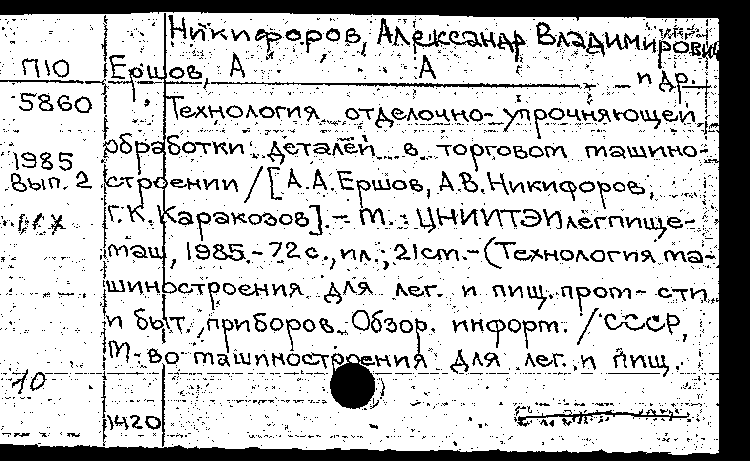 Никифоров, Александр Владимирович
П10 Ершов, А А и др.
5860 Технология отделочно-упрочняющей
обработки деталей в торговом машино-
1985
Вып. 2 строении / [А.А.Ершов, А.В.Никифоров,
Г.К.Каракозов]. - М. : ЦНИИТЭИлегпище-
маш, 1985. - 72 с., ил.; 21 см. - (Технология ма-
шиностроения для лег. и пищ. пром-сти
и быт. приборов. Обзор. информ. / СССР,
М-во машиностроения для лег. и пищ.
10
1420